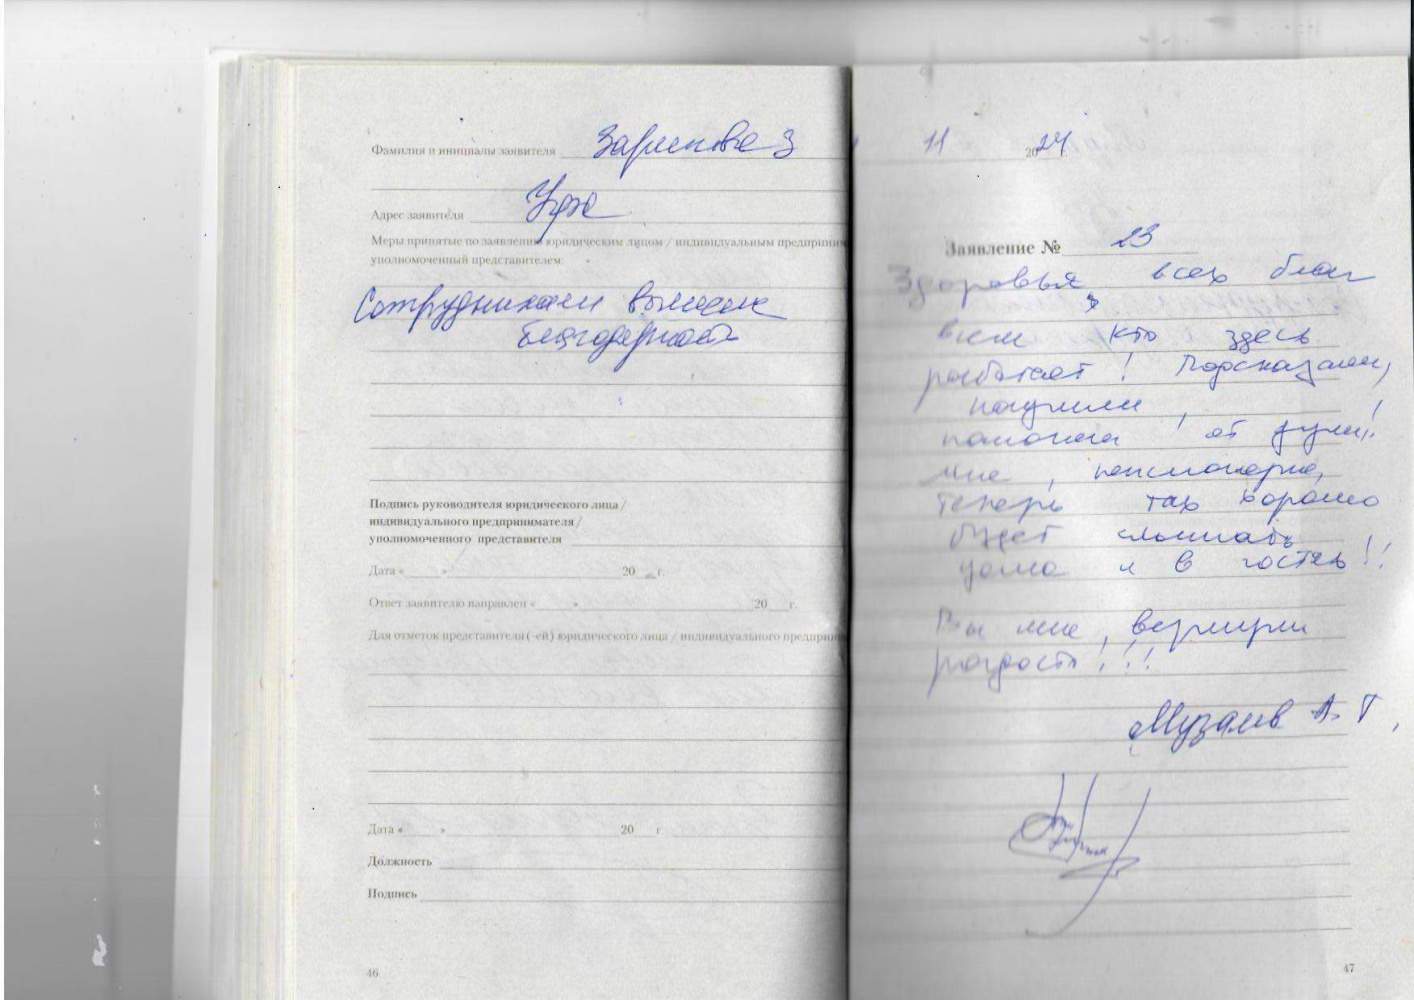 Фамилия и инициалы заявителя Зарипова З
Адрес заявителя Уфа
Меры принятые по заявлению юридическим лицом / индивидуальным предприним
уполномоченный представителем
Сотрудникам
благодарность
Подпись руководителя юридического лица /
индивидуального предпринимателя /
уполномоченного представителя
Дата « » 20 г.
Ответ заявителю направлен « » 20 г.
Для отметок представителя (-ей) юридического лица / индивидуального предприн
Дата « » 20 г
Должность
Подпись
46
11 2024
Заявление № 23
Здоровья всех благ
всем кто здесь
работает! Подсказали,
помогли от души!
мне, пенсионерке,
теперь так хорошо
будет слышать
дома и в гостях!!
Вы мне вернули
радость!!!
А. Г.
47